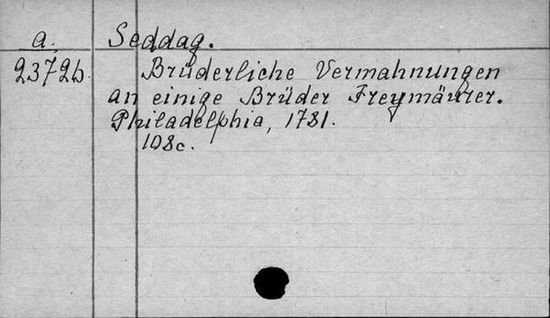 a. Seddag.
2372b. Brüderliche Vermahnungen
an einige Brüder Freymäurer.
Philadelphia, 1781.
108c.